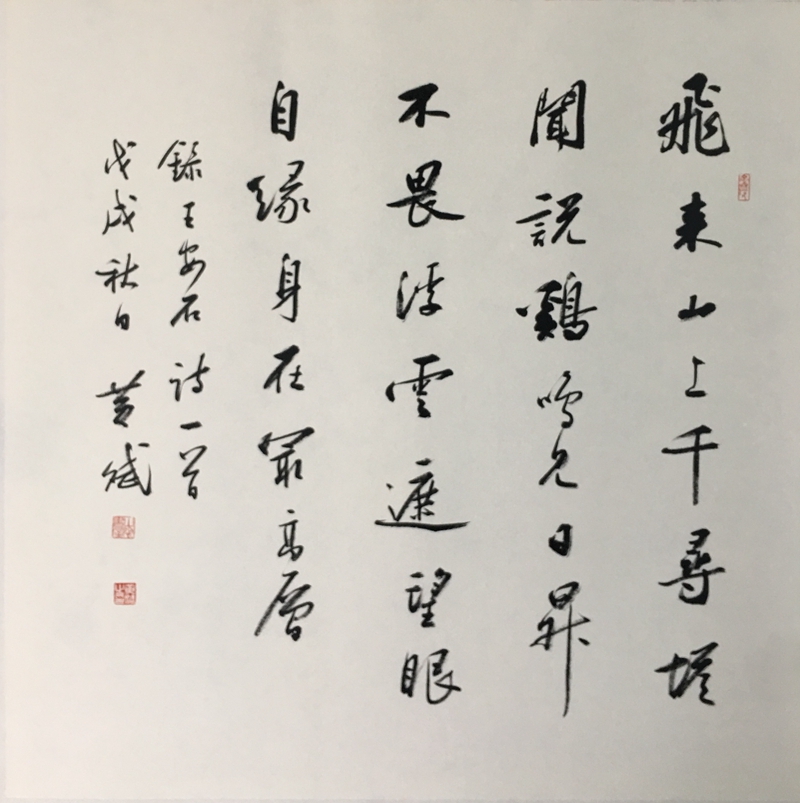 飛来山上千尋塔
聞説鷄鳴見日昇
不畏浮雲遮望眼
自緣身在最高層
錄王安石詩一首
戊戌秋日黄斌